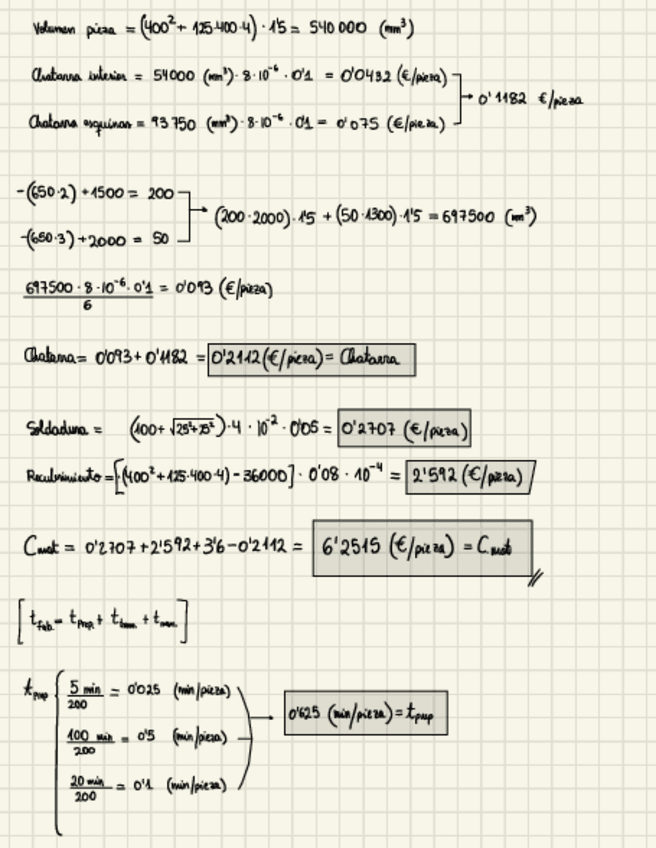 Volumen pieza = (400² + 125·400·4) · 1'5 = 540 000 (mm³)
Chatarra interior = 54000 (mm³) · 8·10⁻⁶ · 0'1 = 0'0432 (€/pieza)
0'1182 €/pieza
Chatarra esquinas = 93 750 (mm³) · 8·10⁻⁶ · 0'1 = 0'075 (€/pieza)
-(650·2) + 1500 = 200
(200·2000)·1'5 + (50·1300)·1'5 = 697500 (mm³)
-(650·3) + 2000 = 50
697500 · 8 · 10⁻⁶ · 0'1 / 6 = 0'093 (€/pieza)
Chatarra = 0'093 + 0'1182 = 0'2112 (€/pieza) = Chatarra
Soldadura = (100 + √25²+25²) · 4 · 10⁻² · 0'05 = 0'2707 (€/pieza)
Recubrimiento = [(400² + 125·400·4) - 36000] · 0'08 · 10⁻⁴ = 2'592 (€/pieza)
Cmat = 0'2707 + 2'592 + 3'6 - 0'2112 = 6'2515 (€/pieza) = Cmat
[tfab = tprep + + tman]
tprep
5 min / 200 = 0'025 (min/pieza)
0'625 (min/pieza) = tprep
100 min / 200 = 0'5 (min/pieza)
20 min / 200 = 0'1 (min/pieza)